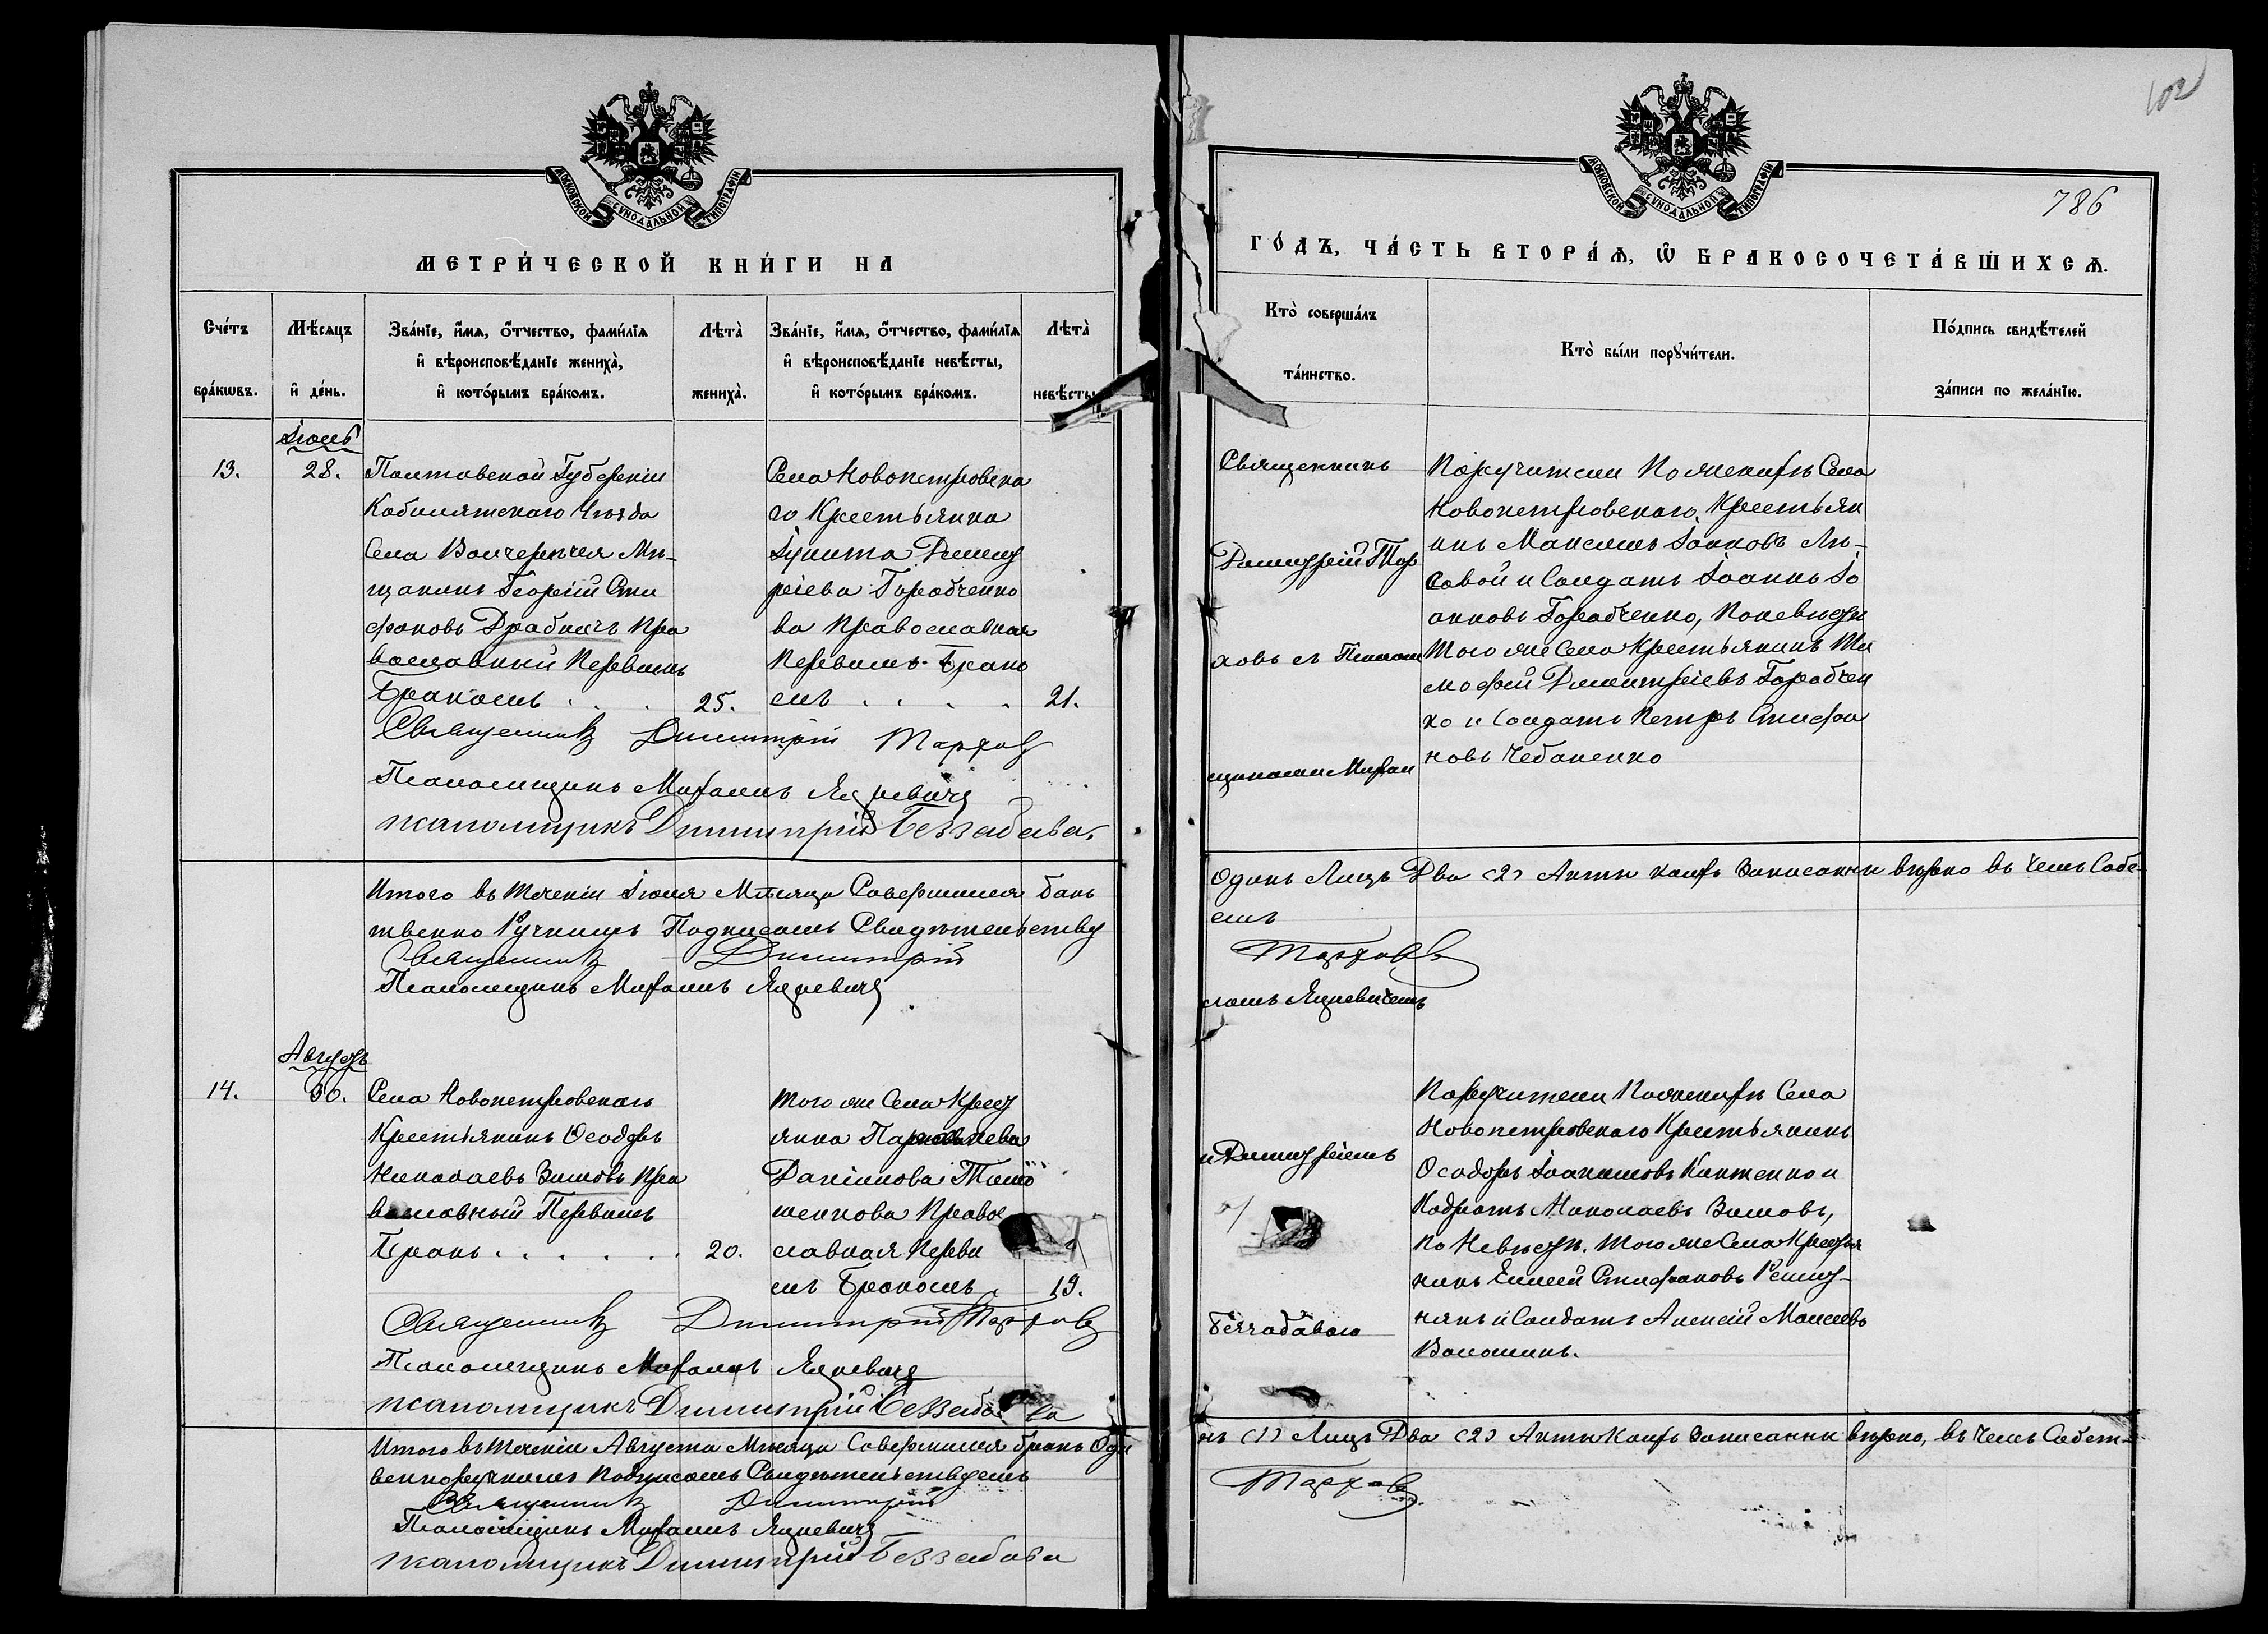 МОСКОВСКОЙ СѴНОДАЛЬНОЙ ТИПОГРАФІИ
МЕТРИ́ЧЕСКОЙ КНИ́ГИ НА
Сче́тъ бра́кωвъ.
Мѣ́сяцъ и҆ де́нь.
Зва́нїе, и҆́мя, ѻ҆́тчество, фами́лїя
и҆ вѣроисповѣ́данїе жениха̀,
и҆ кото́рымъ бра́комъ.
Лѣта̀ жениха̀.
Зва́нїе, и҆́мя, ѻ҆́тчество, фами́лїя
и҆ вѣроисповѣ́данїе невѣ́сты,
и҆ кото́рымъ бра́комъ.
Лѣта̀ невѣ́сты.
Іюль
13.
28.
Полтавской Губерніи
Кобилятскаго Уѣзда
Села
Мѣ-
щанинъ Георгій Сте
фановъ Драбничъ Пра
вославный Первымъ
Бракомъ . . .
25.
Села Новопетровска
го Крестьянка
Іулита Димит
ріева Горобченко
ва Православная
Первымъ Брако
мъ . . . .
21.
Священникъ Димитрій Тарховъ
Псаломщикъ Михаилъ Яцкевичъ
псаломщикъ Димитрій Беззабава
Итого въ теченіи Іюля Мѣсяца Совершился бакъ
твенно Ручнымъ Подписомъ Свидѣтельству
Священникъ Димитрій
Псаломщикъ Михаилъ Яцкевичъ
Августъ
14.
30.
Села Новопетровскаго
Крестьянинъ Ѳеодоръ
Николаевъ Зимовъ Пра
вославный Первымъ
Бракъ . . . . . .
20.
того же Села Крест
янка
Даніилова Тимо
шенкова Правос
славная Первы
мъ Бракомъ
19.
Священникъ Димитрій Тарховъ
Псаломщикъ Михаилъ Яцкевичъ
псаломщикъ Димитрій Беззаба ва
Итого въ теченіи Августа Мѣсяца Совершился бракъ Оди
венноручнымъ подписомъ Свидѣтельствуемъ
Священникъ Димитрій
Псаломщикъ Михаилъ Яцкевичъ
псаломщикъ Димитрій Беззабава
102
786
МОСКОВСКОЙ СѴНОДАЛЬНОЙ ТИПОГРАФІИ
ГО́ДЪ, ЧА́СТЬ ВТОРА́Ѧ, Ѡ҆ БРАКОСОЧЕТА́ВШИХСѦ.
Кто̀ соверша́лъ та́инство.
Кто̀ бы́ли порꙋчи́тели.
По́дпись свидѣ́телей за́писи по жела́нїю.
Священникъ
Димитрій Тар
ховъ съ Псалом
щиками Михаи
Поручители По женихѣ Села
Новопетровскаго Крестьян
инъ Максимъ Іоановъ Лѣ-
совой и Солдатъ Іоаннъ Іо
анновъ Горобченко, По невѣсти
Того же Села Крестьянинъ Ти
мофей Димитріевъ Горобчен
ко и Солдатъ Петръ Стефа
новъ Чебаненко
Одинъ Лицъ Два (2) Акты каихъ Записанны вѣрно въ Чемъ Собс
емъ
Тарховъ
ломъ Яцкевичемъ
и Димитріемъ
Беззабавою
Поручители По женихѣ Села
Новопетровскаго Крестьянинъ
Ѳеодоръ
и
Кодратъ Николаевъ Зимовъ,
по Невѣсти. того же Села Крестья
нинъ Елисей Стефановъ Решет-
някъ и Солдатъ Алексій Моисеевъ
Волошинъ.
нъ (1) Лицъ Два (2) Акты Каихъ Записанны вѣрно, въ Чемъ Собст-
Тарховъ